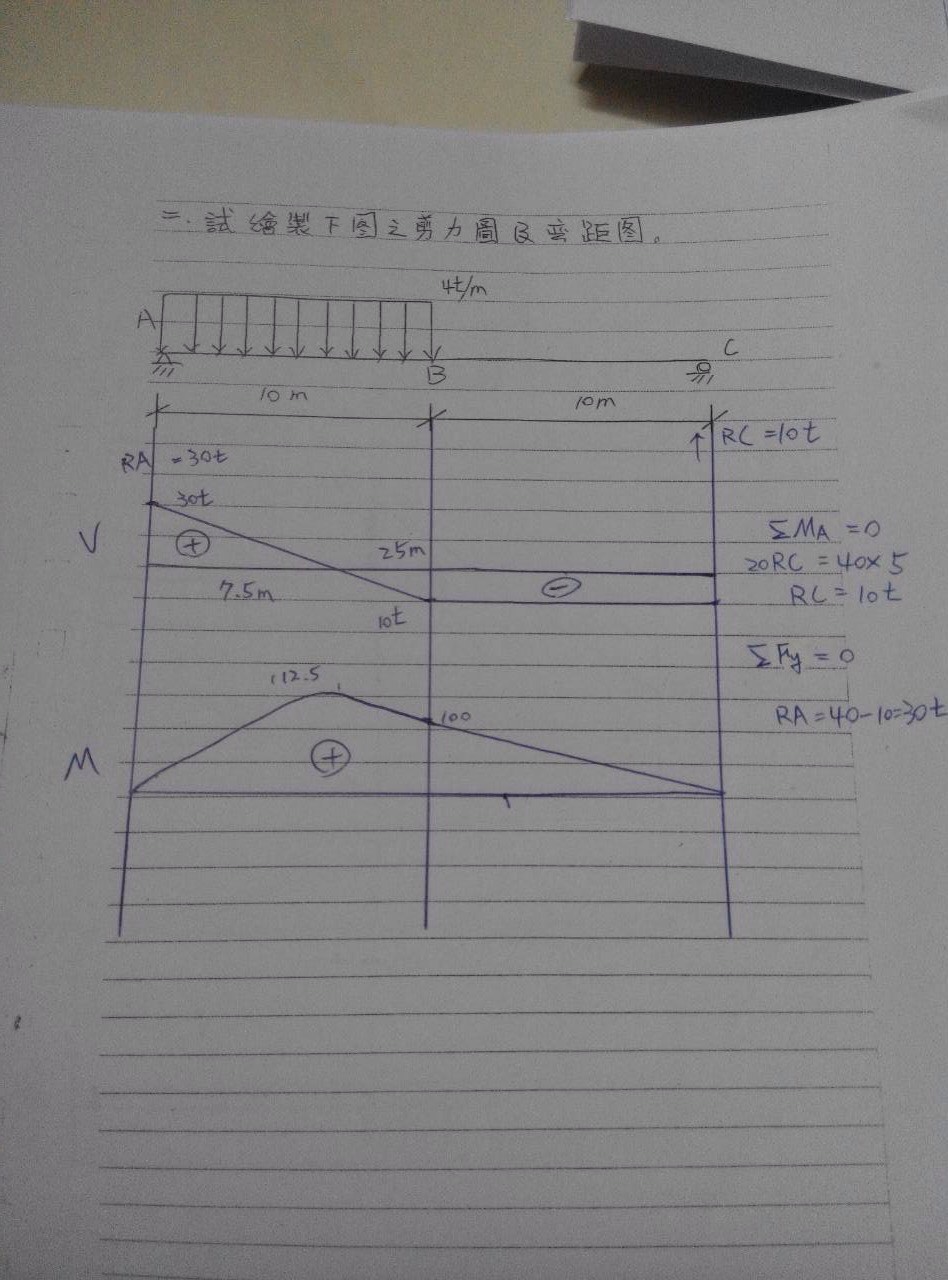 二.試繪製下图之剪力圖及弯距图。
4t/m
A
B
C
10m
10m
RC=10t
RA=30t
30t
V
+
25m
7.5m
−
10t
ΣMA=0
20RC=40×5
RC=10t
ΣFy=0
RA=40-10=30t
112.5
100
M
+